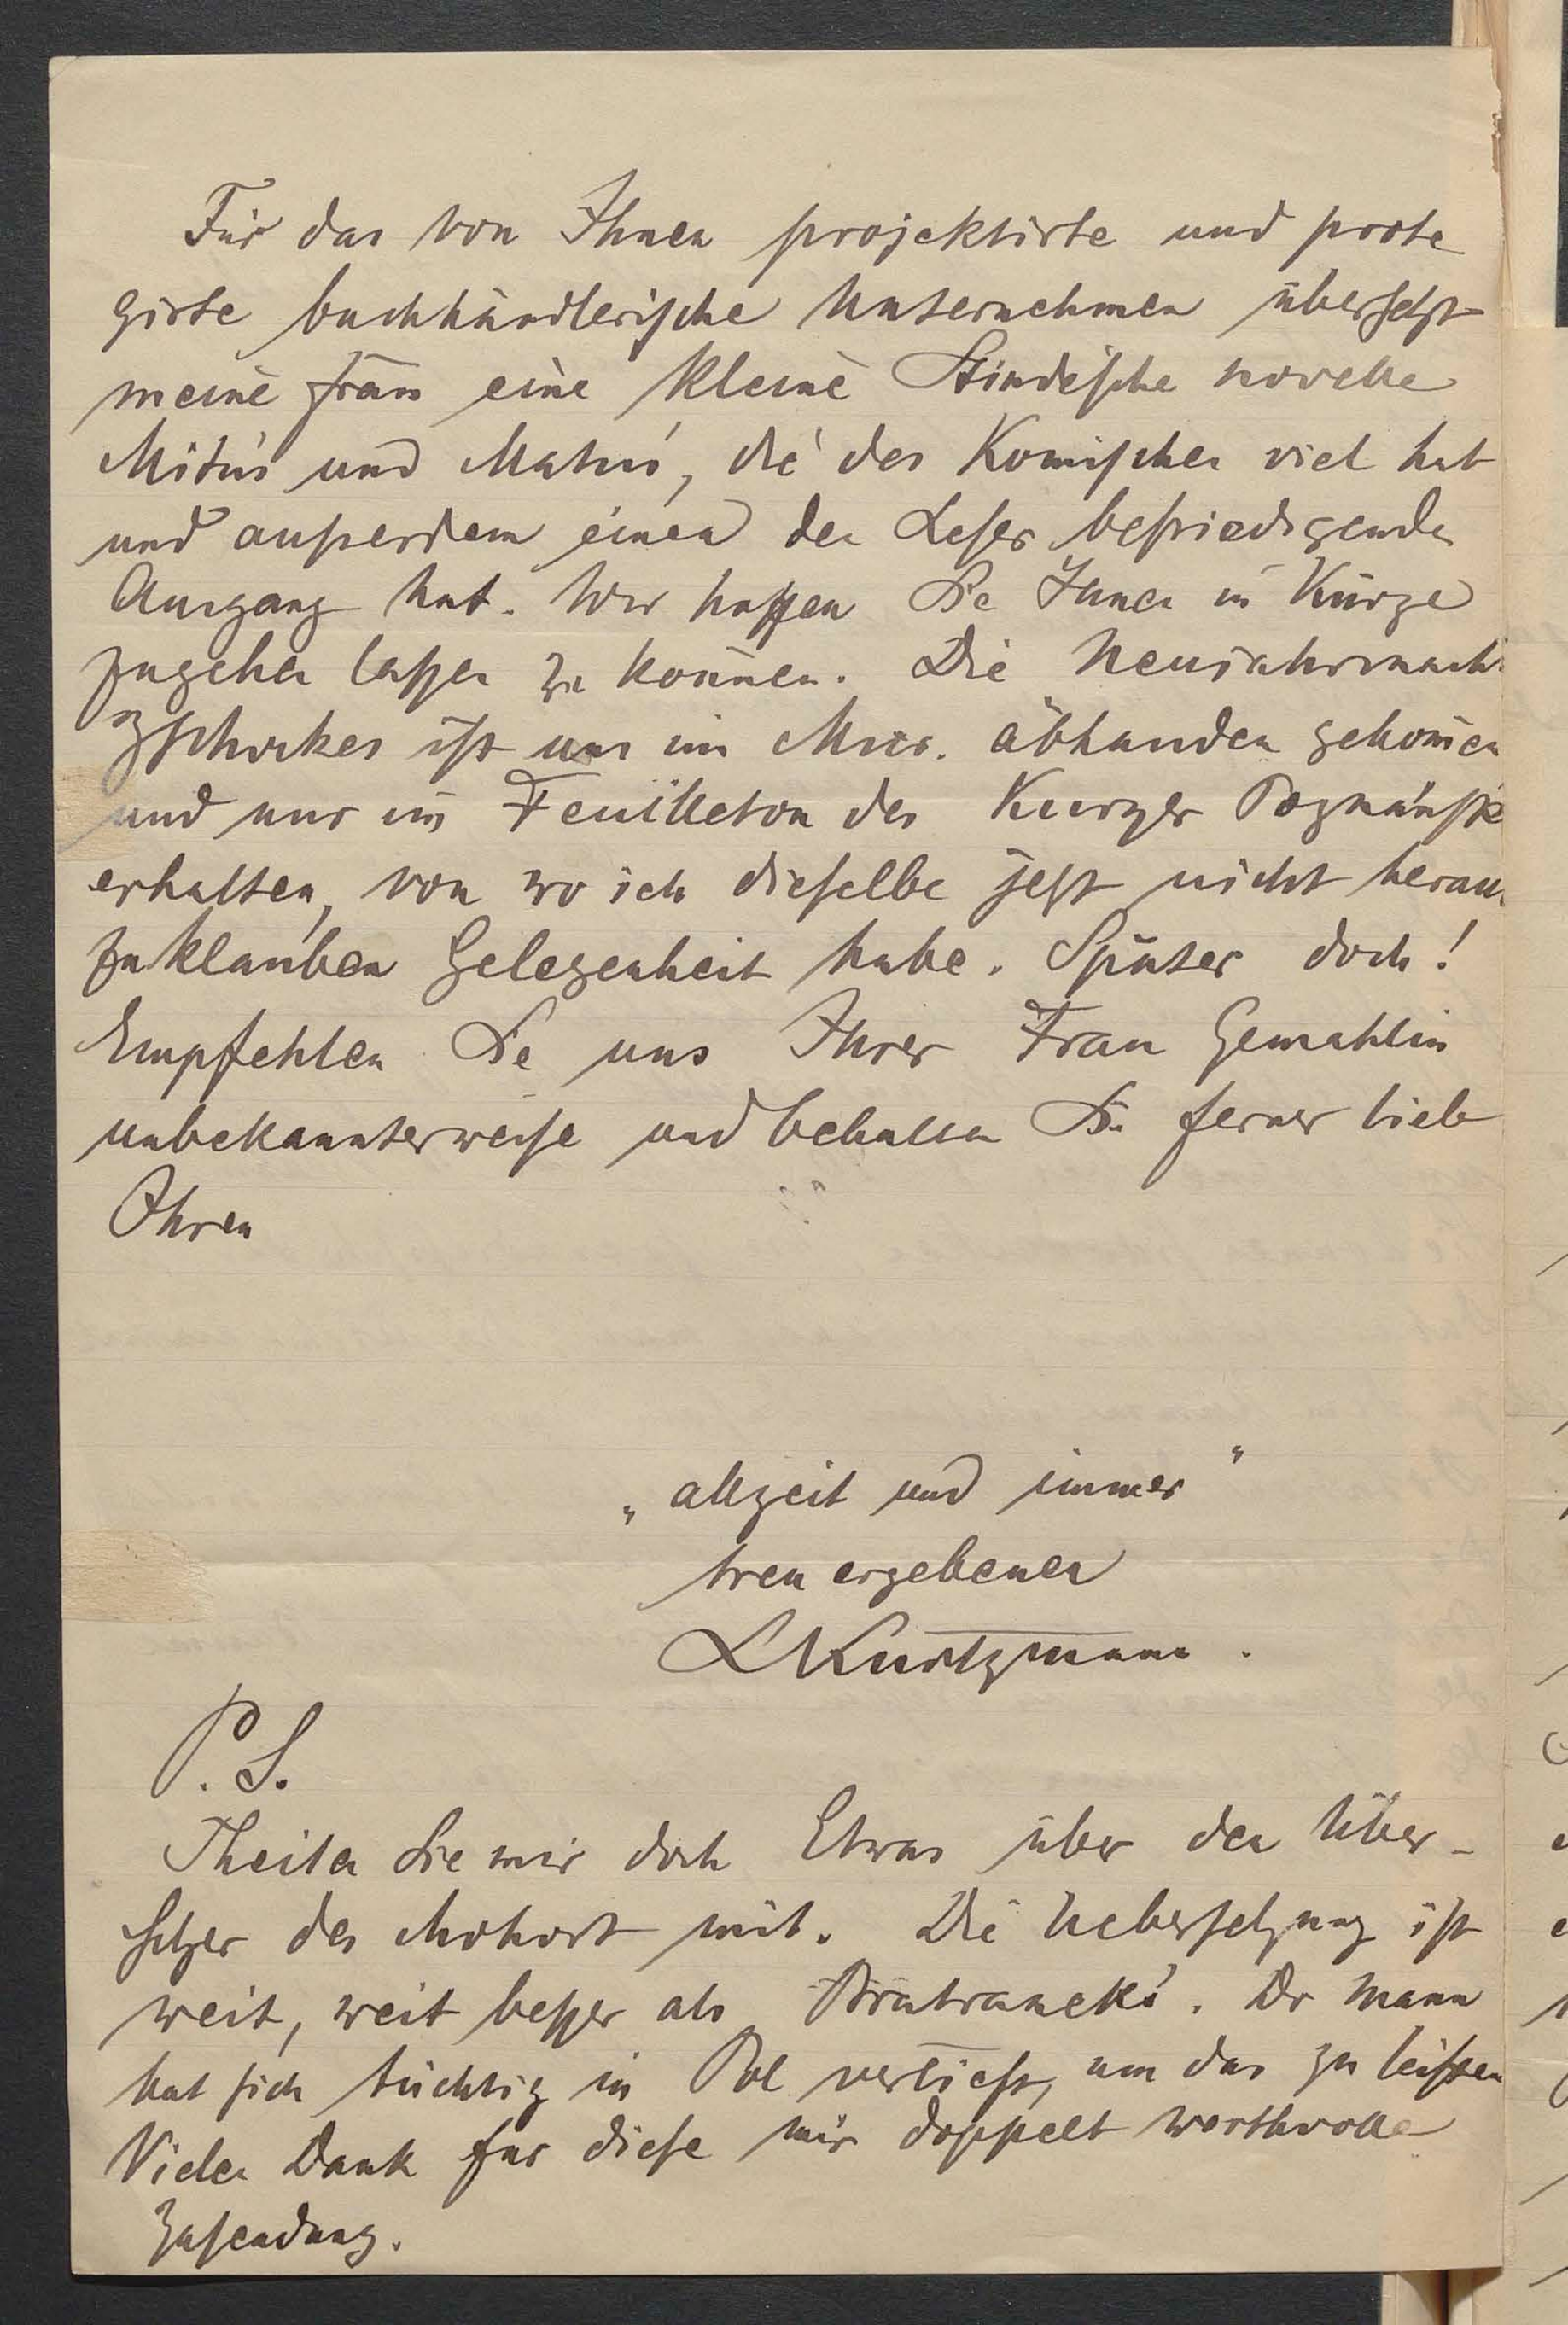 Für das von Ihnen projektirte und prote
girte buchhändlerische Unternehmen übersetzt
meine Frau eine kleine Stindesche Novelle
und , die des Komischen viel hat
und außerdem einen den Leser befriedigenden
Ausgang hat. Wir hoffen Sie Ihnen in Kürze
zugehen lassen zu können. Die Neujahrsnach
Zschokkes ist uns im Mscr. abhanden gekomen
und nur im Feuilleton des Kuryer Poznański
erhalten, von wo ich dieselbe jetzt nicht heraus
zuklauben Gelegenheit habe. Später doch!
Empfehlen Sie uns Ihrer Frau Gemahlin
unbekannterweise und behalten Sie ferner lieb
Ihren
„allzeit und immer"
treu ergebenen
LKurtzmann.
P. S.
Theilen Sie mir doch Etwas über den Über-
setzer des Mohort mit. Die Uebersetzung ist
weit, weit besser als Bratranek's. Der Mann
hat sich tüchtig in Pol vertieft, um das zu leisten
Vielen Dank für diese mir doppelt werthvolle
Zusendung.